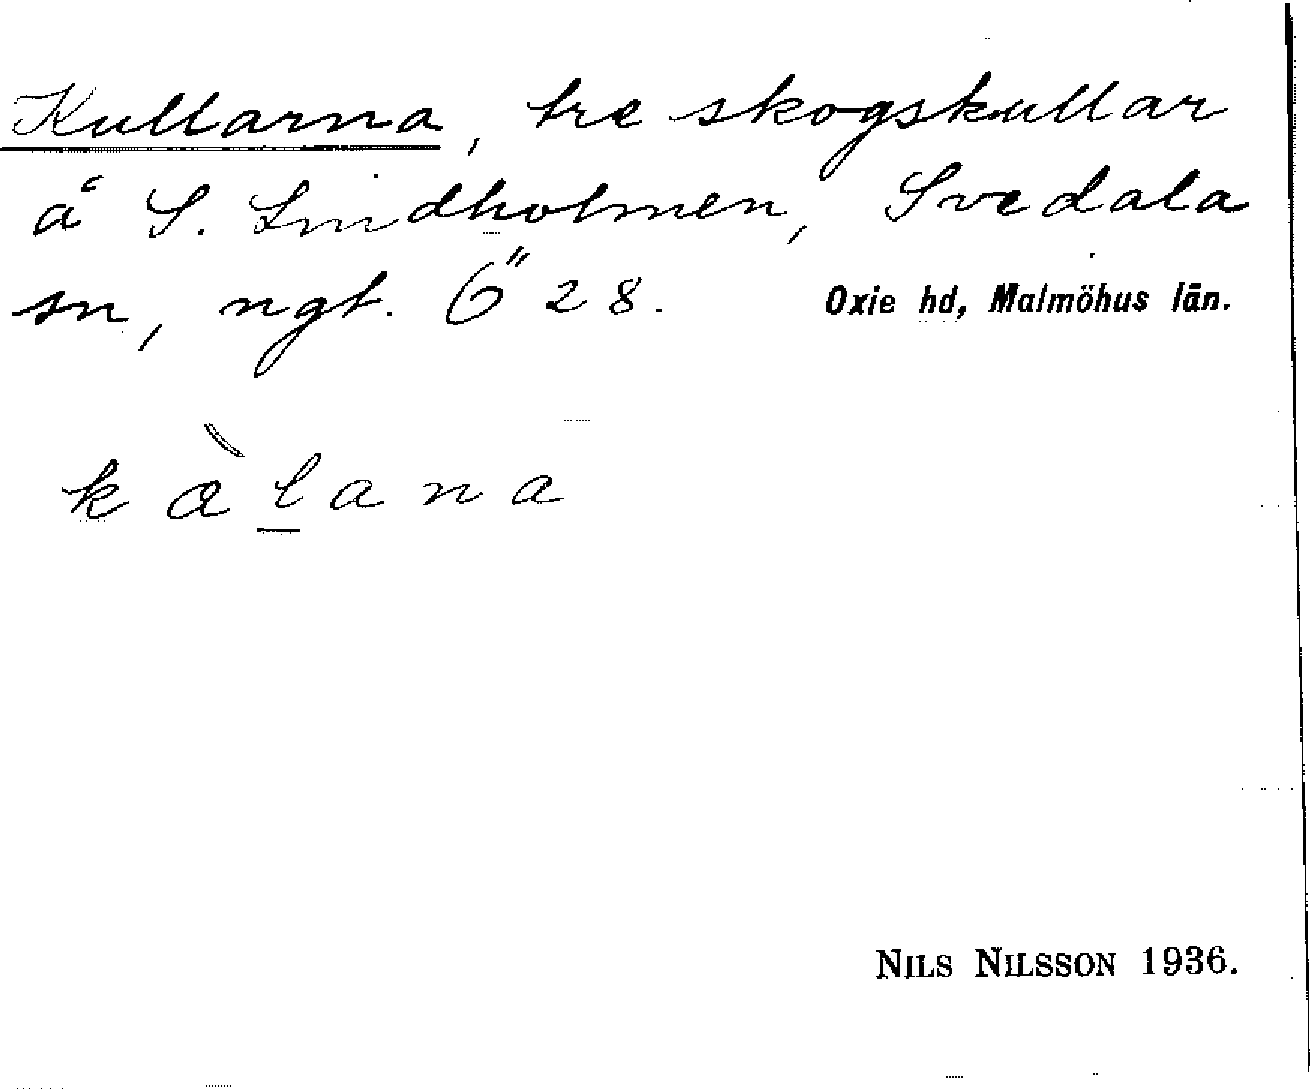 Kullarna, tre skogskullar
å S. Lindholmen, Svedala
sn, ngt. Ö 28. Oxie hd, Malmöhus län.
kàlana
NILS NILSSON 1936.